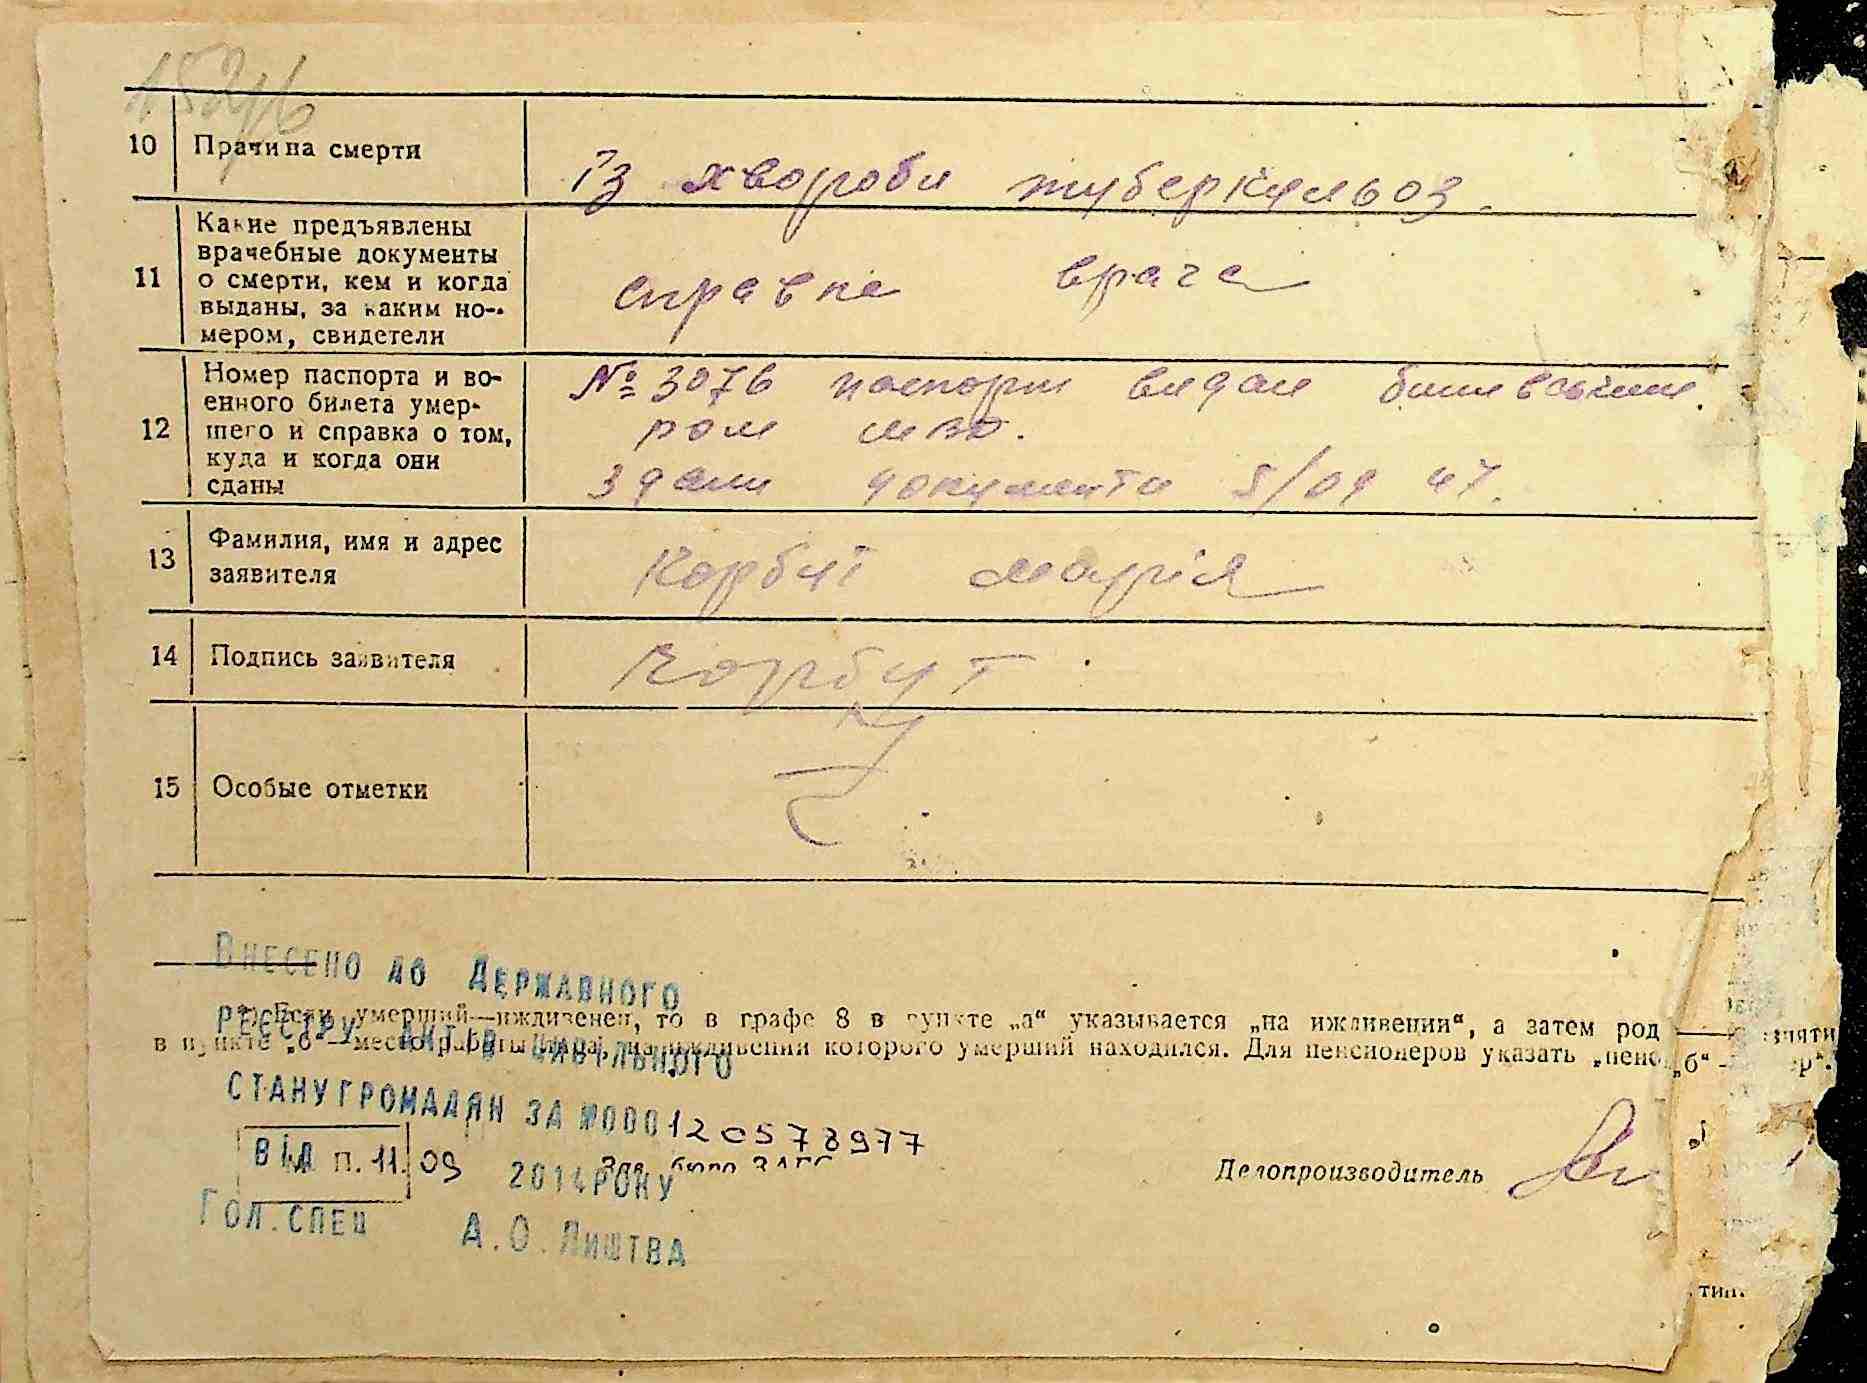 10 Причина смерти
Із хвороби туберкульоз.
11 Какие предъявлены
врачебные документы
о смерти, кем и когда
выданы, за каким но-
мером, свидетели
справка врача
12 Номер паспорта и во-
енного билета умер-
шего и справка о том,
куда и когда они
сданы
№ 3076 паспорт видан
ром
здани документи 5/09 47.
13 Фамилия, имя и адрес
заявителя
Корбут Марія
14 Подпись заявителя
Корбут
15 Особые отметки
Внесено до Державного
реєстру актів цивільного
стану громадян за №000120578977
від п. 11. 09 2014 року
Гол. спец А.О. Лиштва
*) Если умерший—иждивенец, то в графе 8 в пункте „а“ указывается „на иждивении“, а затем род
в пункте „б“—место работы лица, на иждивении которого умерший находился. Для пенсионеров указать „пенс
Зав. бюро ЗАГС
Делопроизводитель
тип.